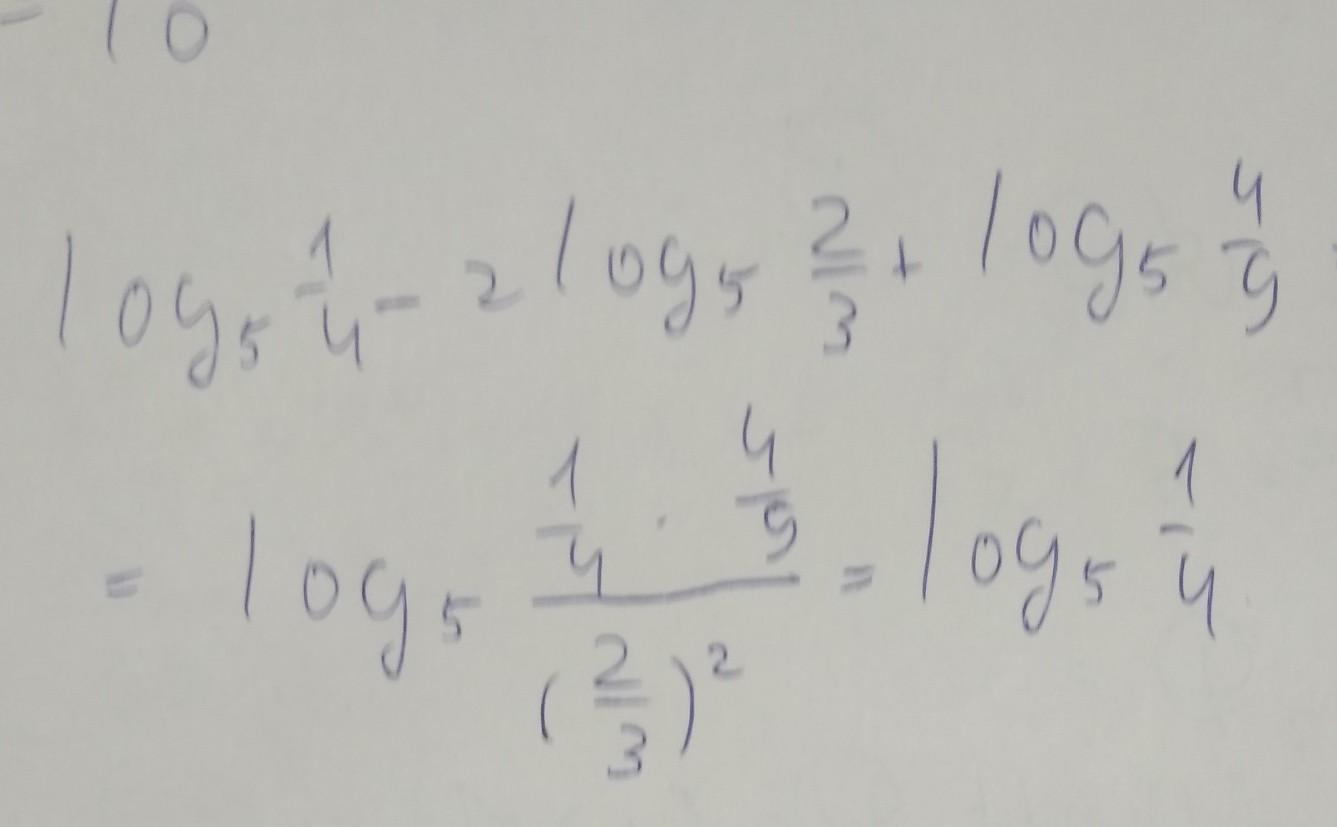 - 10
log₅ 1/4 - 2 log₅ 2/3 + log₅ 4/9
= log₅ (1/4 · 4/9)/(2/3)² = log₅ 1/4